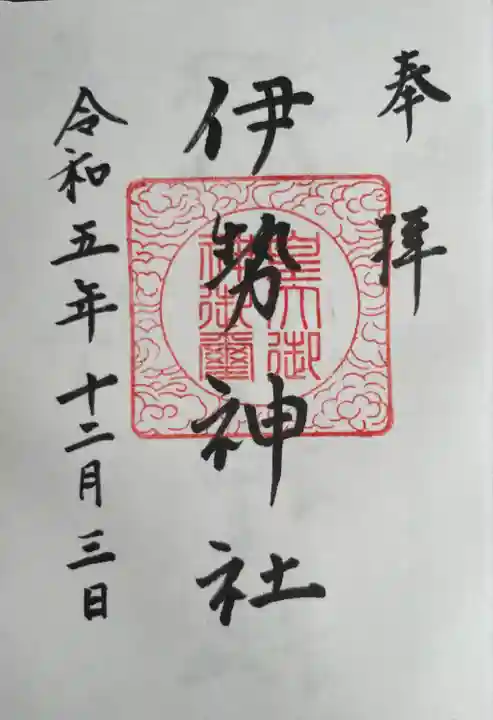 奉拝
伊勢神社
皇大御
神御璽
令和五年十二月三日